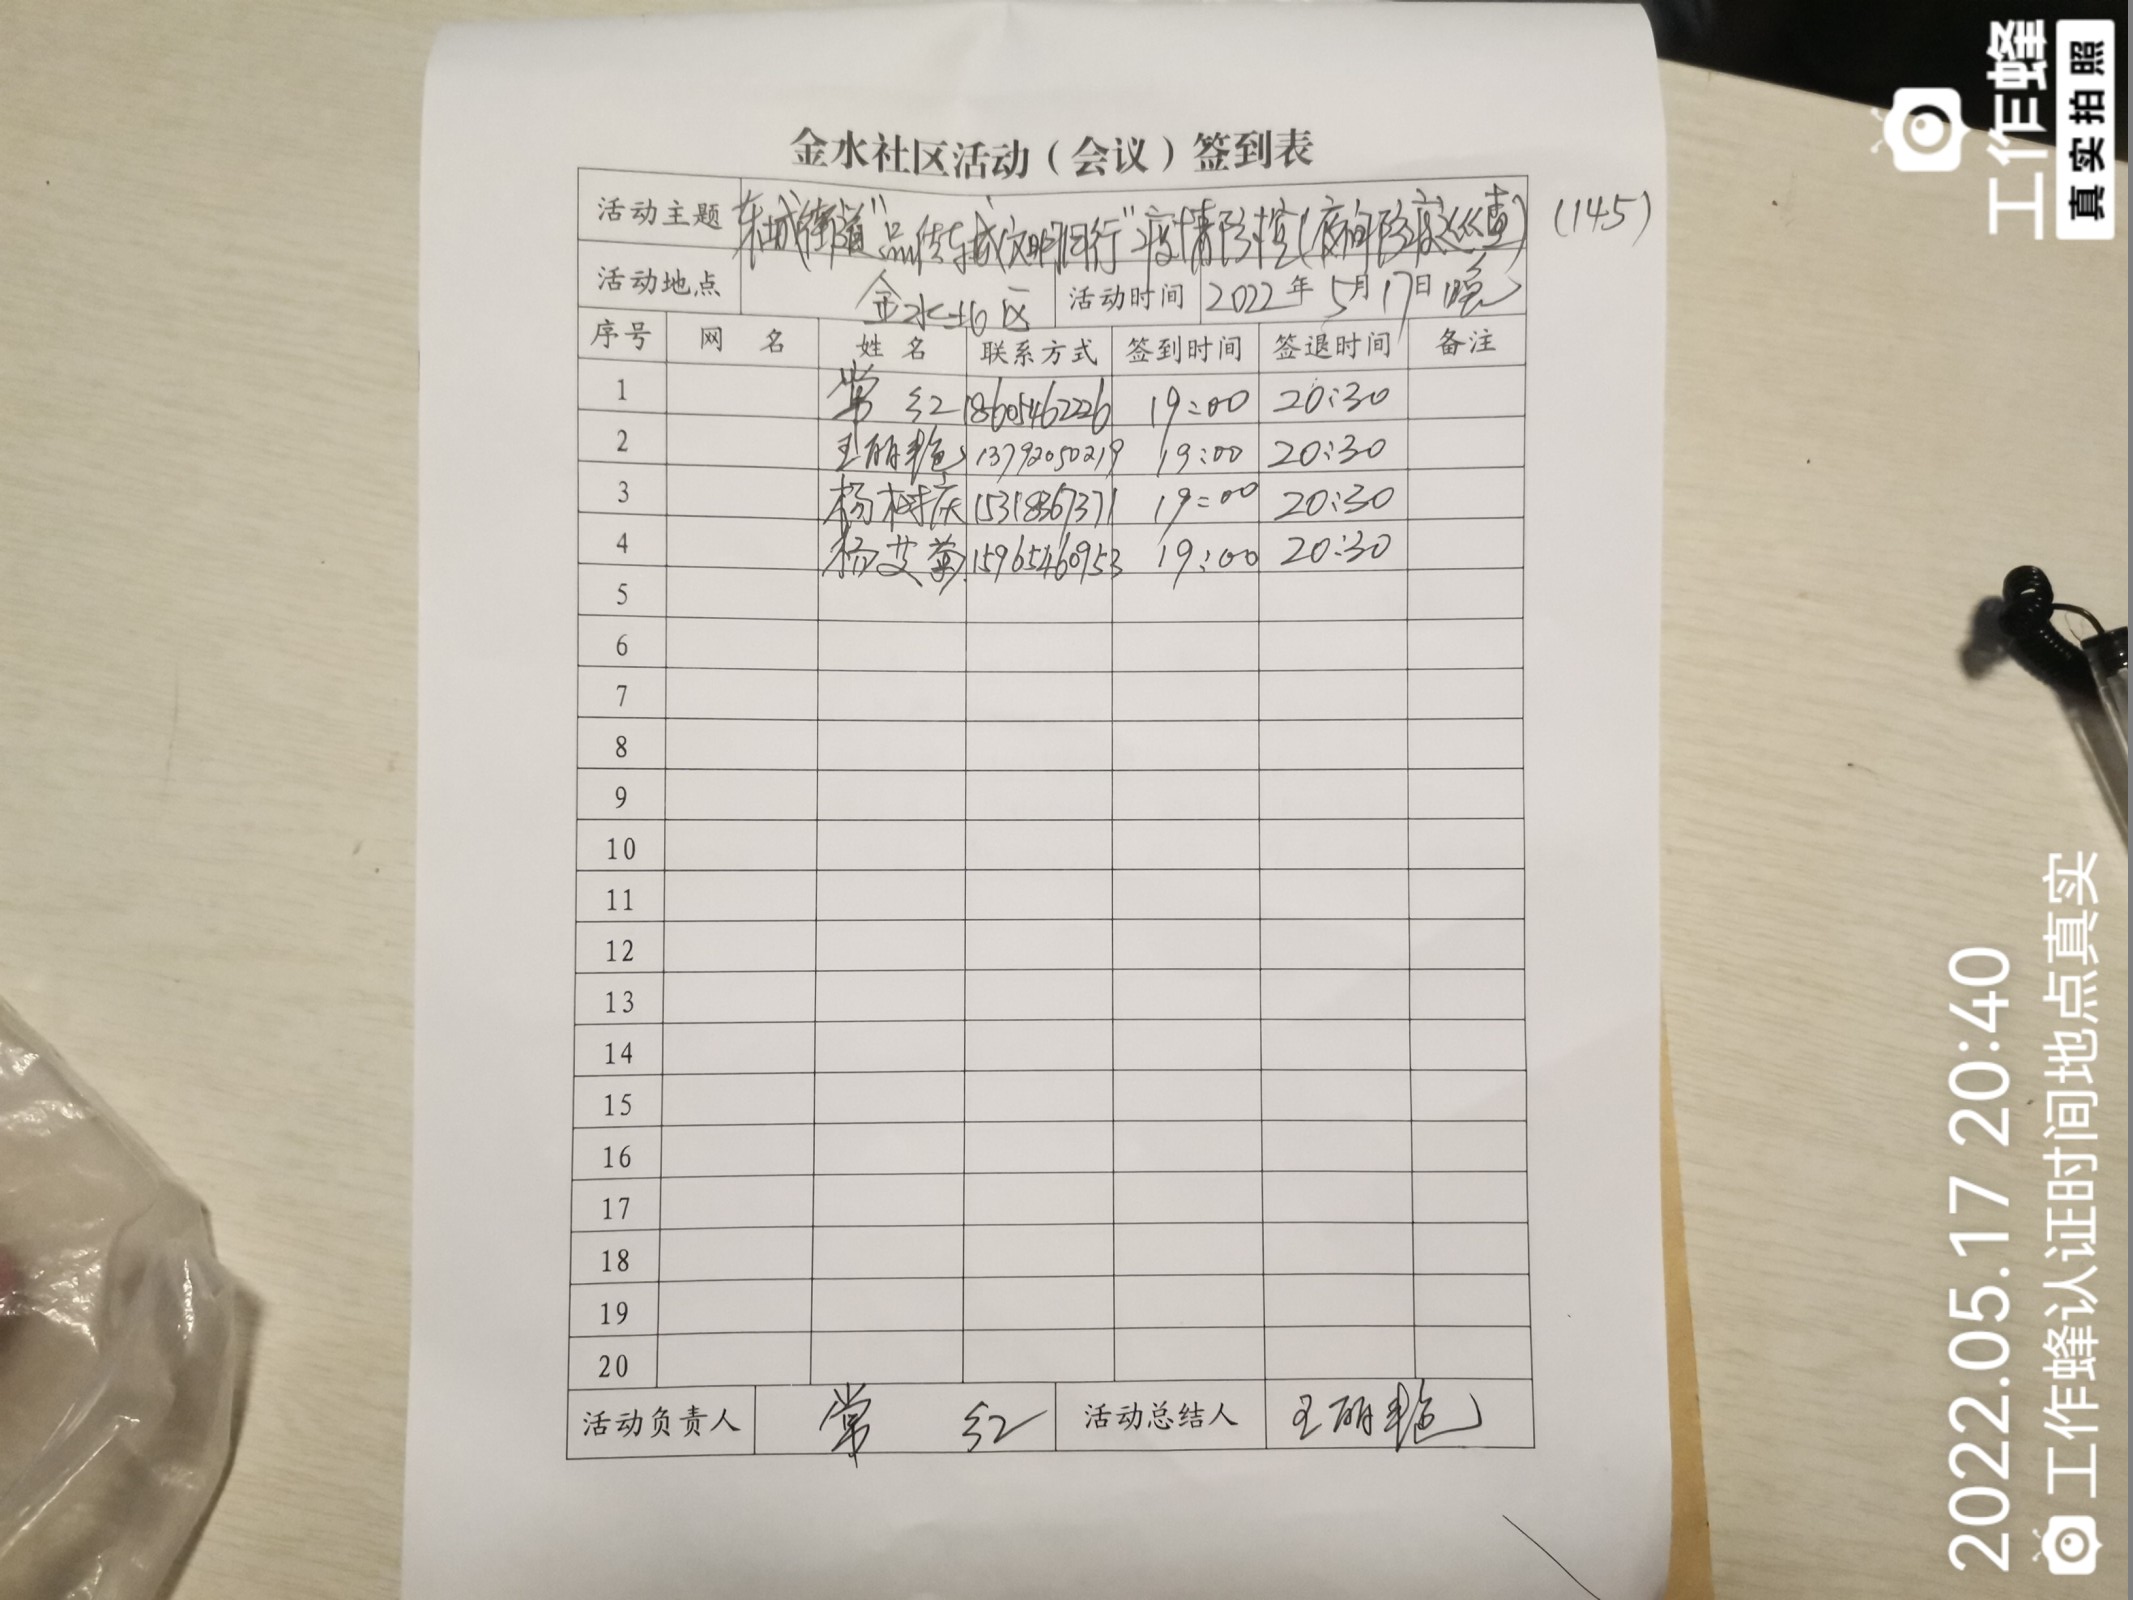 金水社区活动（会议）签到表
活动主题 东城街道"品佳东城 文明同行"疫情防控(夜间防疫巡查) (145)
活动地点 金水社区 活动时间 2022年5月17日晚
序号 网 名 姓 名 联系方式 签到时间 签退时间 备注
1 常 红 18605462226 19:00 20:30
2 王丽艳 13792050219 19:00 20:30
3 杨树庆 15318367371 19:00 20:30
4 杨艾 15965460953 19:00 20:30
5
6
7
8
9
10
11
12
13
14
15
16
17
18
19
20
活动负责人 常 红 活动总结人 王丽艳
工作蜂
真实拍照
2022.05.17 20:40
工作蜂认证时间地点真实